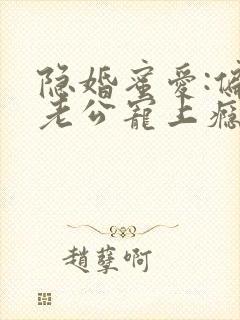 隐婚蜜愛:偏
老公寵上瘾
趙孽啊